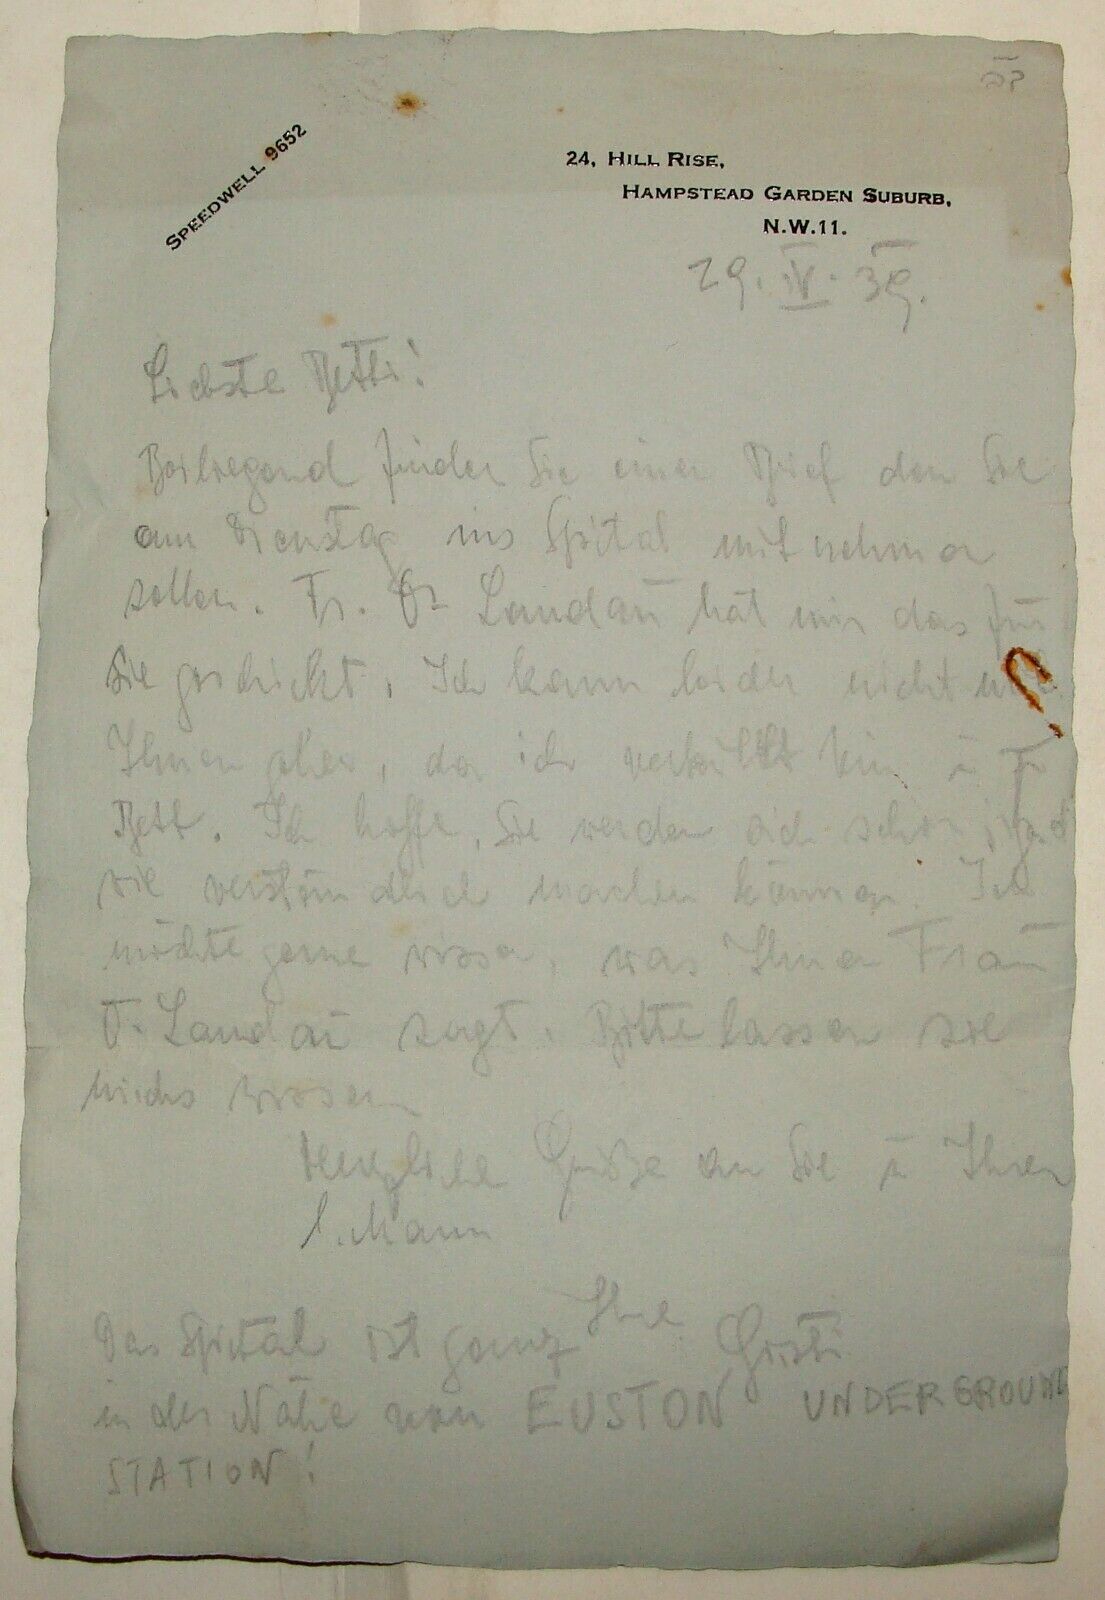 SPEEDWELL 9652
24, HILL RISE,
HAMPSTEAD GARDEN SUBURB,
N.W.11.
29. IV. 39.
Liebste Betti!
Beiliegend finden Sie einen Brief den Sie
am Dienstag ins Spital mitnehmen
sollen. Fr. Dr Landau hat mir das für
Sie geschickt. Ich kann leider nicht mit
Ihnen gehen, da ich verkühlt bin u im
Bett. Ich hoffe, Sie werden sich schon irgend
wie verständlich machen können. Ich
möchte gerne wissen, was Ihnen Frau
D. Landau sagt. Bitte lassen sie
michs wissen
Herzliche Grüße an Sie u Ihren
l. Mann
Ihre Gusti
Das Spital ist ganz
in der Nähe von EUSTON UNDERGROUND
STATION!